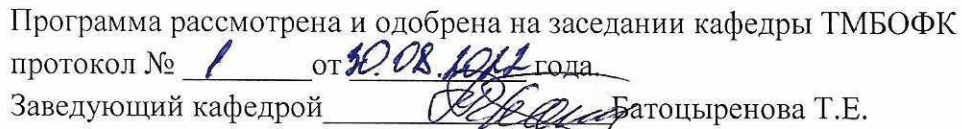 Программа рассмотрена и одобрена на заседании кафедры ТМБОФК
протокол № 1 от 30.08.2022 года.
Заведующий кафедрой Батоцыренова Т.Е.